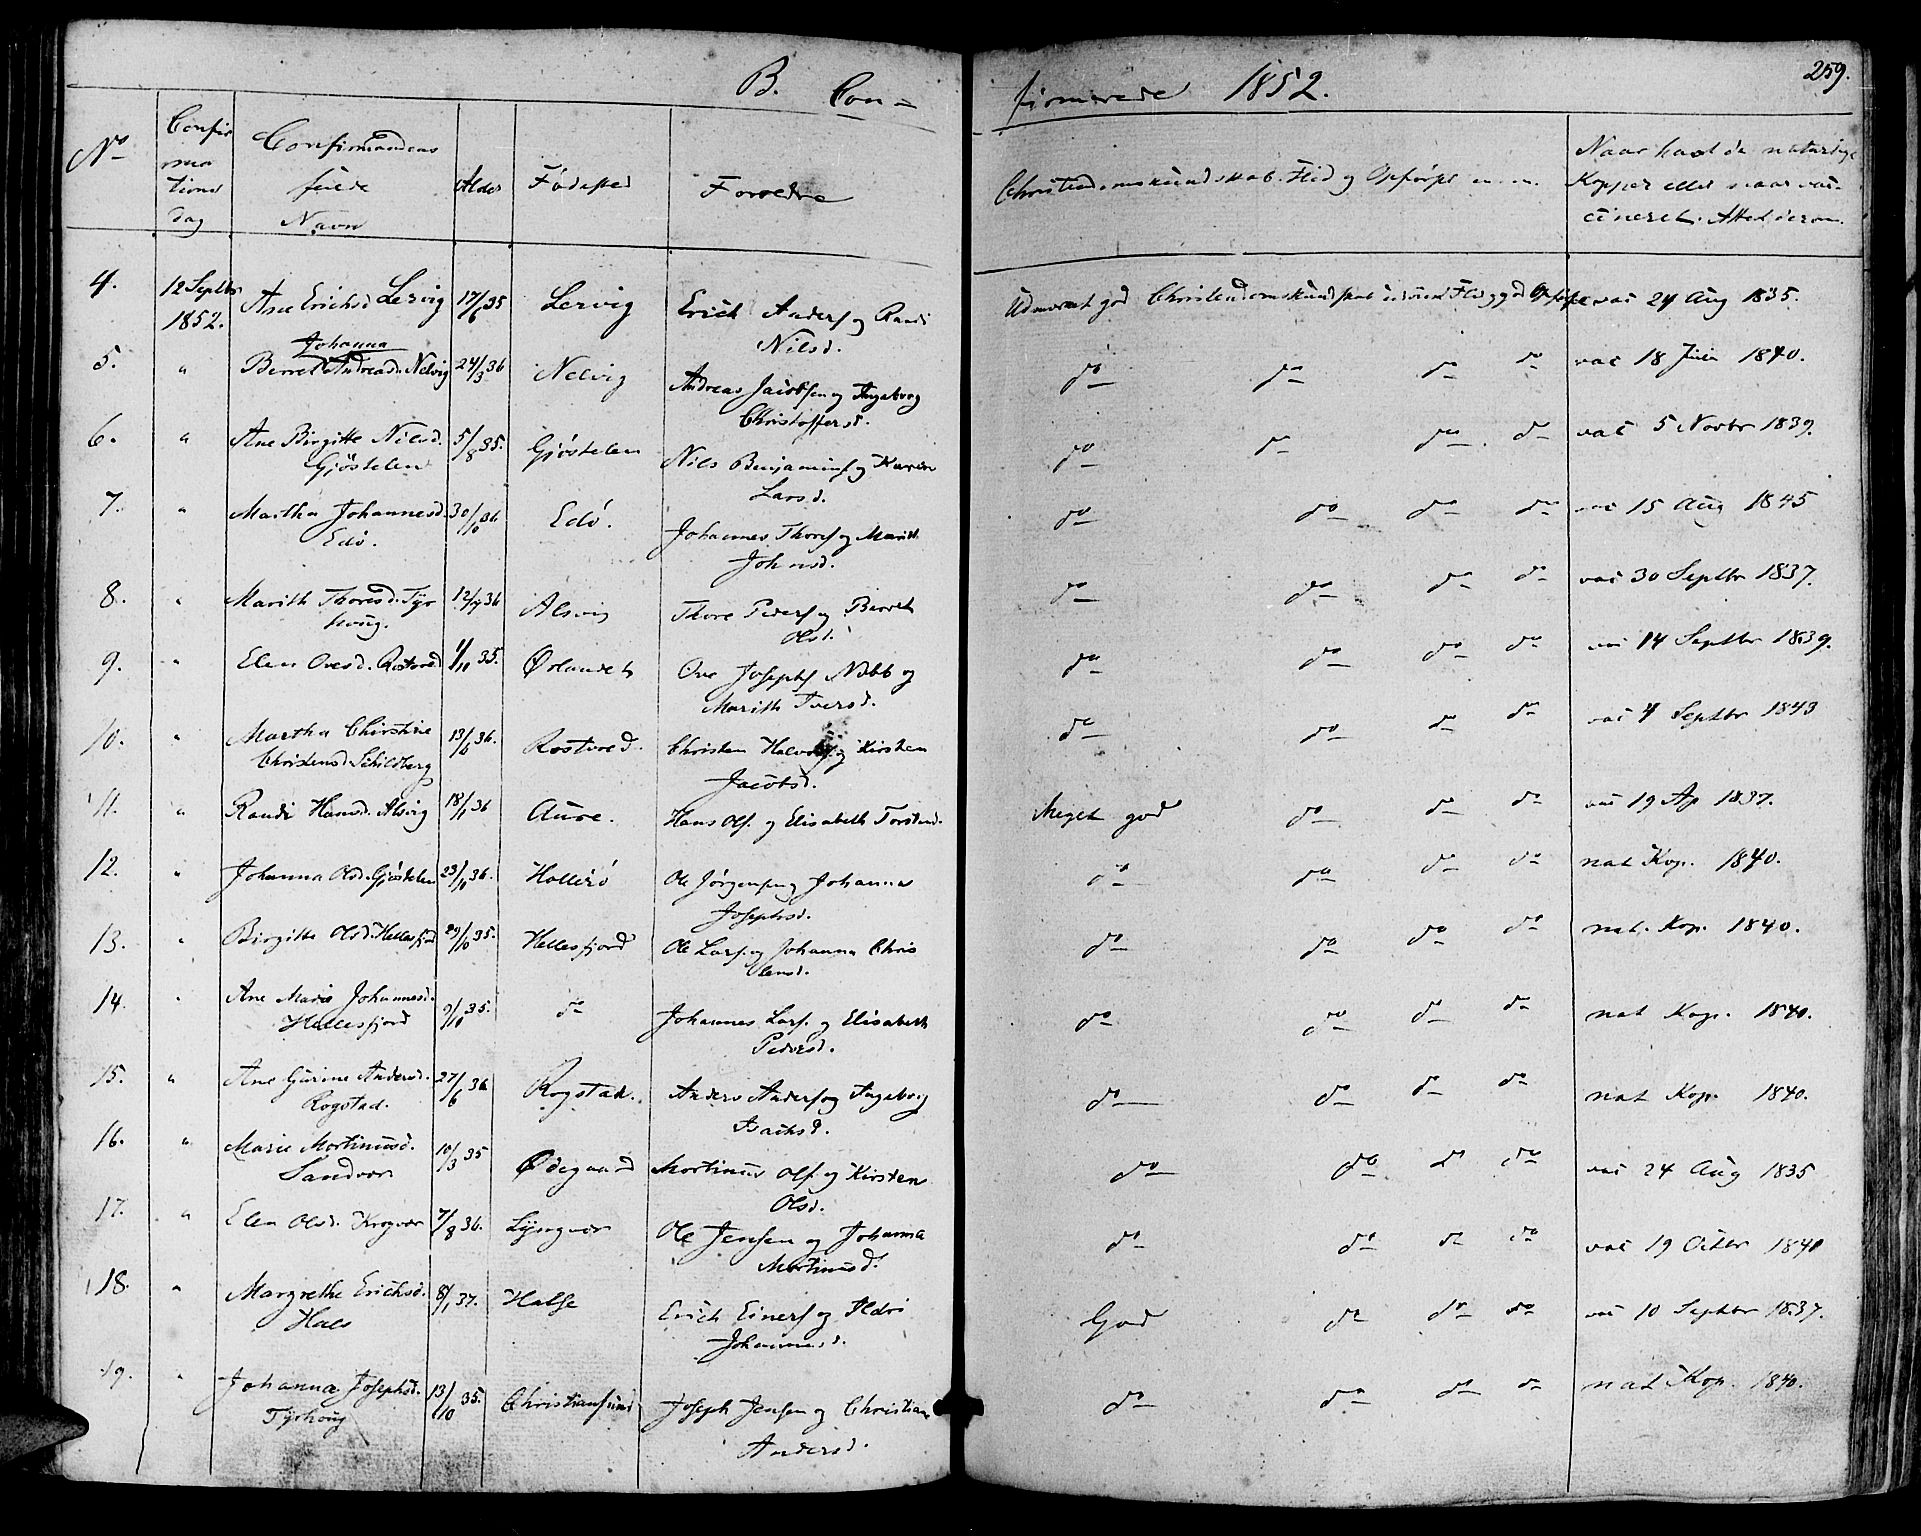 B. Con=
firmerede 1852.
259.
No
Confir
ma
tions
dag
Confirmandens
fulde
Navn
Alder
Fødested
Forældre
Christendomskundskab. Flid og Opførsel m. m.
Naar havt de naturlige
Kopper eller naar vac-
cineret. Attest derom.
4. 12 Septbr 1852. Ane Erichsd Lervig 17/6 35 Lervig Erich Anders og Randi Nilsd. Udmærket god Christendomskundskab udmt Flid og god Opførsel vac 24 Aug 1835.
5. " Berret Johanna Andreasd. Nelvig 24/3 36 Nelvig Andreas Jacobsen og Ingeborg Christoffersd. do do do do vac 18 Juni 1840.
6. " Ane Birgitte Nilsd. Gjøstelen 5/8 35. Gjøstelen Nils Benjamins og Karen Larsd. do do do do vac 5 Novbr 1839.
7. " Martha Johannesd. Edø. 30/10 36 Edø. Johannes Thores og Marith Johnsd. do do do do vac 15 Aug 1845
8. " Marith Thoresd. Tyrhoug. 12/4 36 Alsvig Thore Peders og Berret Olsd. do do do do vac 30 Septbr 1837.
9. " Elen Ovesd. Rostved 1/11 35. Ørlandet Ove Josephs Nebb og Marith Iversd. do do do do vac 14 Septbr 1839.
10. " Martha Chirstine Christensd. Schildberg 13/6 36. Rostved. Christen Halvors og Kirsten Jacobsd. do do do do vac 4 Septbr 1843
11. " Randi Hansd. Alsvig 18/1 36 Aure. Hans Ols. og Elisabeth Torstensd. Meget god do do do vac 19 Ap 1837.
12. " Johanna Olsd. Gjøstelen 23/1 36. Hallerø Ole Jørgensen og Johanna Josephsd. do do do do nat Kop. 1840.
13. " Birgitte Olsd. Hellesfjord 29/10 35. Hellesfjord Ole Lars. og Johanna Christensd. do do do do nat. Kop. 1840.
14. " Ane Marie Johannesd. Hellesfjord 9/10 35. do Johannes Lars. og Elisabeth Pedersd. do do do do nat Kop. 1840.
15. " Ane Gurine Andersd. Rogstad. 27/6 36 Rogstad. Anders Anders og Ingeborg Isachsd. do do do do nat Kop. 1840.
16. " Marie Mortinusd. Sandvær 10/3 35 Ødegaard Mortinus Ols. og Kirsten Olsd. do do do do vac 24 Aug 1835
17. " Elen Olsd. Krogvær 7/8 36. Lyngvær Ole Jensen og Johanna Mortinusd. do do do do vac 19 Octbr 1840
18. " Margrethe Erichsd. Hals 8/1 37. Halse Erich Einers og Ildri Johannesd. God do do do vac 10 Septbr 1837.
19. " Johanna Josephsd. Tyrhoug 13/10 35. Christiansund Joseph Jensen og Christiane Andersd. do do do do nat Kop. 1840.